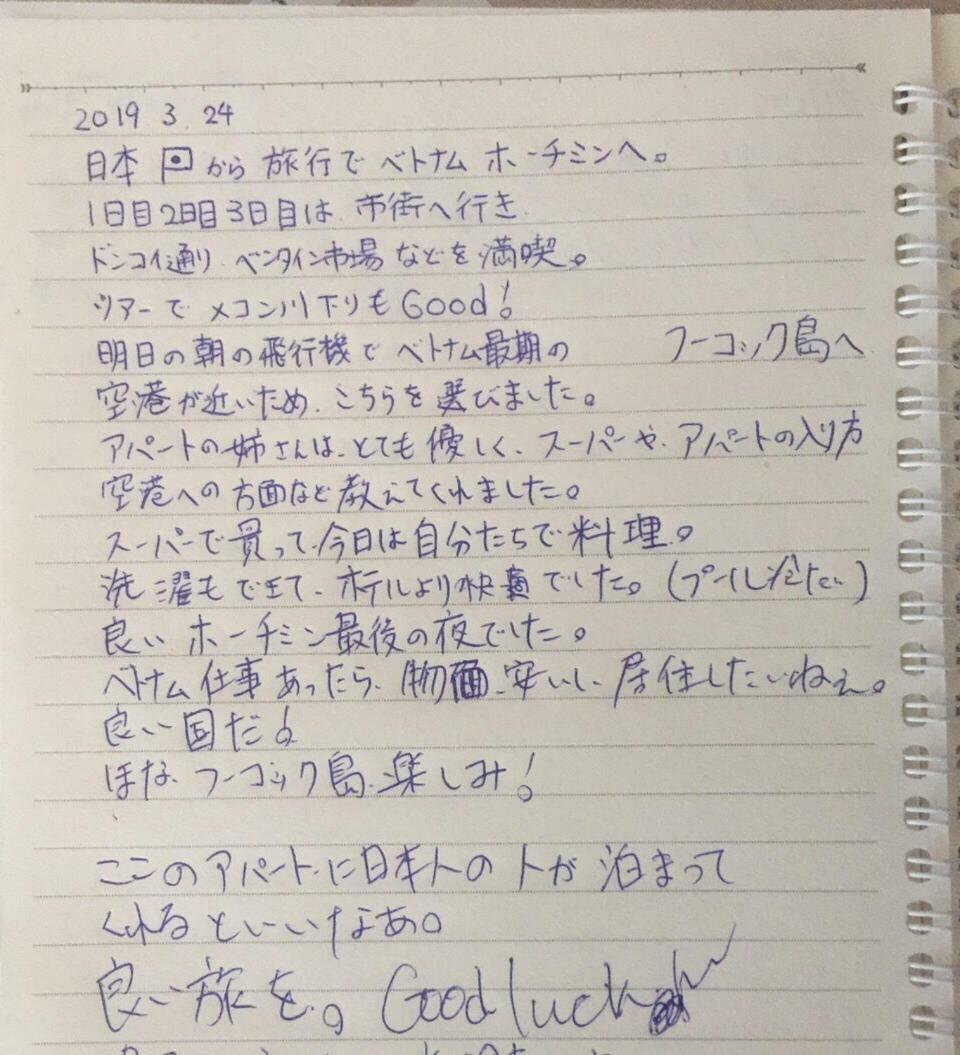 2019 3. 24
日本 から 旅行で ベトナム ホーチミンへ。
1日目2日目3日目は、市街へ行き
ドンコイ通り、ベンタイン市場などを満喫。
ツアーで メコン川下りもGood!
明日の朝の飛行機で ベトナム最期の フーコック島へ
空港が近いため、こちらを選びました。
アパートの姉さんは、とても優しく、スーパーや、アパートの入り方
空港への方面など教えてくれました。
スーパーで買って、今日は自分たちで料理。
洗濯もできて、ホテルより快適でした。(プール冷たい)
良い ホーチミン最後の夜でした。
ベトナム仕事あったら、物価、安いし、居住したいねぇ。
良い国だ!
ほな、フーコック島、楽しみ!
ここのアパートに日本人の人が 泊まって
くれるといいなあ。
良い旅を。Good luck